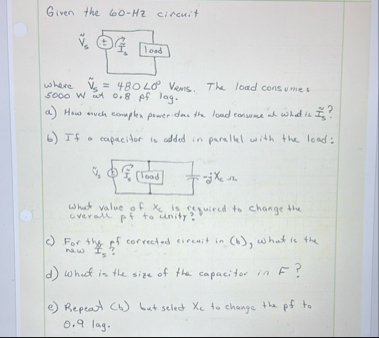 Given the 60-Hz circuit
Ṽs + - Ĩs load
where Ṽs = 480∠0° Vrms. The load consumes
5000 W at 0.8 pf lag.
a) How much complex power does the load consume and what is Ĩs?
b) If a capacitor is added in parallel with the load:
Ṽs Ĩs load -jXc Ω
What value of Xc is required to change the
overall pf to unity?
c) For the pf corrected circuit in (b), what is the
new Ĩs?
d) What is the size of the capacitor in F?
e) Repeat (b) but select Xc to change the pf to
0.9 lag.